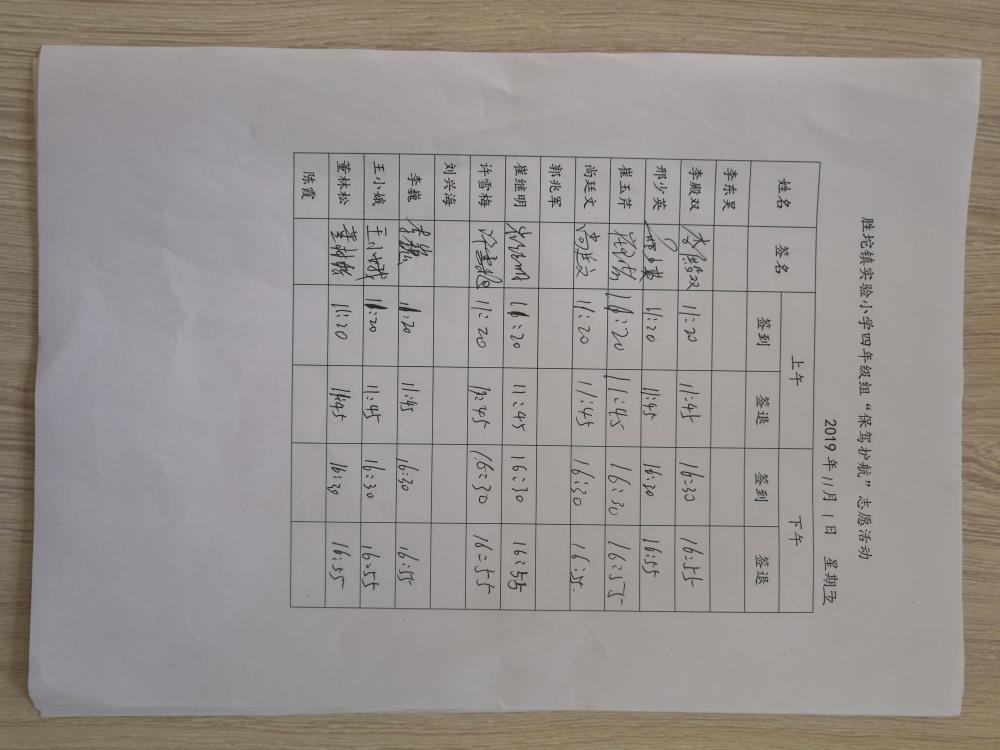 胜坨镇实验小学四年级组“保驾护航”志愿活动
2019年11月1日 星期五
姓名 签名 上午 下午
签到 签退 签到 签退
李东昊
李殿双 李殿双 11:20 11:45 16:30 16:55
邢少英 邢少英 11:20 11:45 16:30 16:55
崔玉芹 崔玉芹 11:20 11:45 16:30 16:55
尚廷文 尚廷文 11:20 11:45 16:30 16:55
郭兆军
崔继明 崔继明 11:20 11:45 16:30 16:55
许雪梅 许雪梅 11:20 11:45 16:30 16:55
刘兴海
李巍 李巍 11:20 11:45 16:30 16:55
王小娥 王小娥 11:20 11:45 16:30 16:55
董林松 董林松 11:20 11:45 16:30 16:55
陈霞